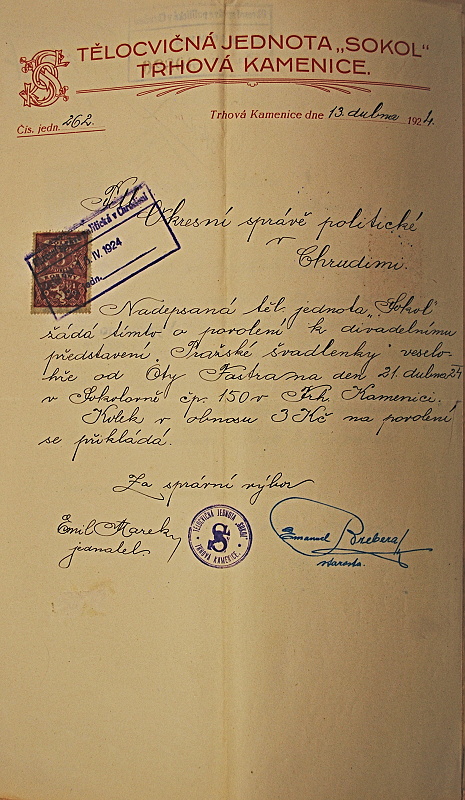 TĚLOCVIČNÁ JEDNOTA „SOKOL“
TRHOVÁ KAMENICE.
Čís. jedn. 262.
Trhová Kamenice dne 13. dubna 1924.
Okresní správě politické
v
Chrudimi.
politická v Chrudimi
IV. 1924
Nadepsaná těl. jednota „Sokol“
žádá tímto o povolení k divadelnímu
představení „Pražské švadlenky“ veselo-
hře od Oty Fastra na den 21. dubna 24
v Sokolovně čp. 150 v Trh. Kamenici.
Kolek v obnosu 3 Kč na povolení
se přikládá.
Za správní výbor
Emil Marek
jednatel.
TĚLOCVIČNÁ JEDNOTA „SOKOL“
TRHOVÁ KAMENICE.
Emanuel Brebera
starosta.